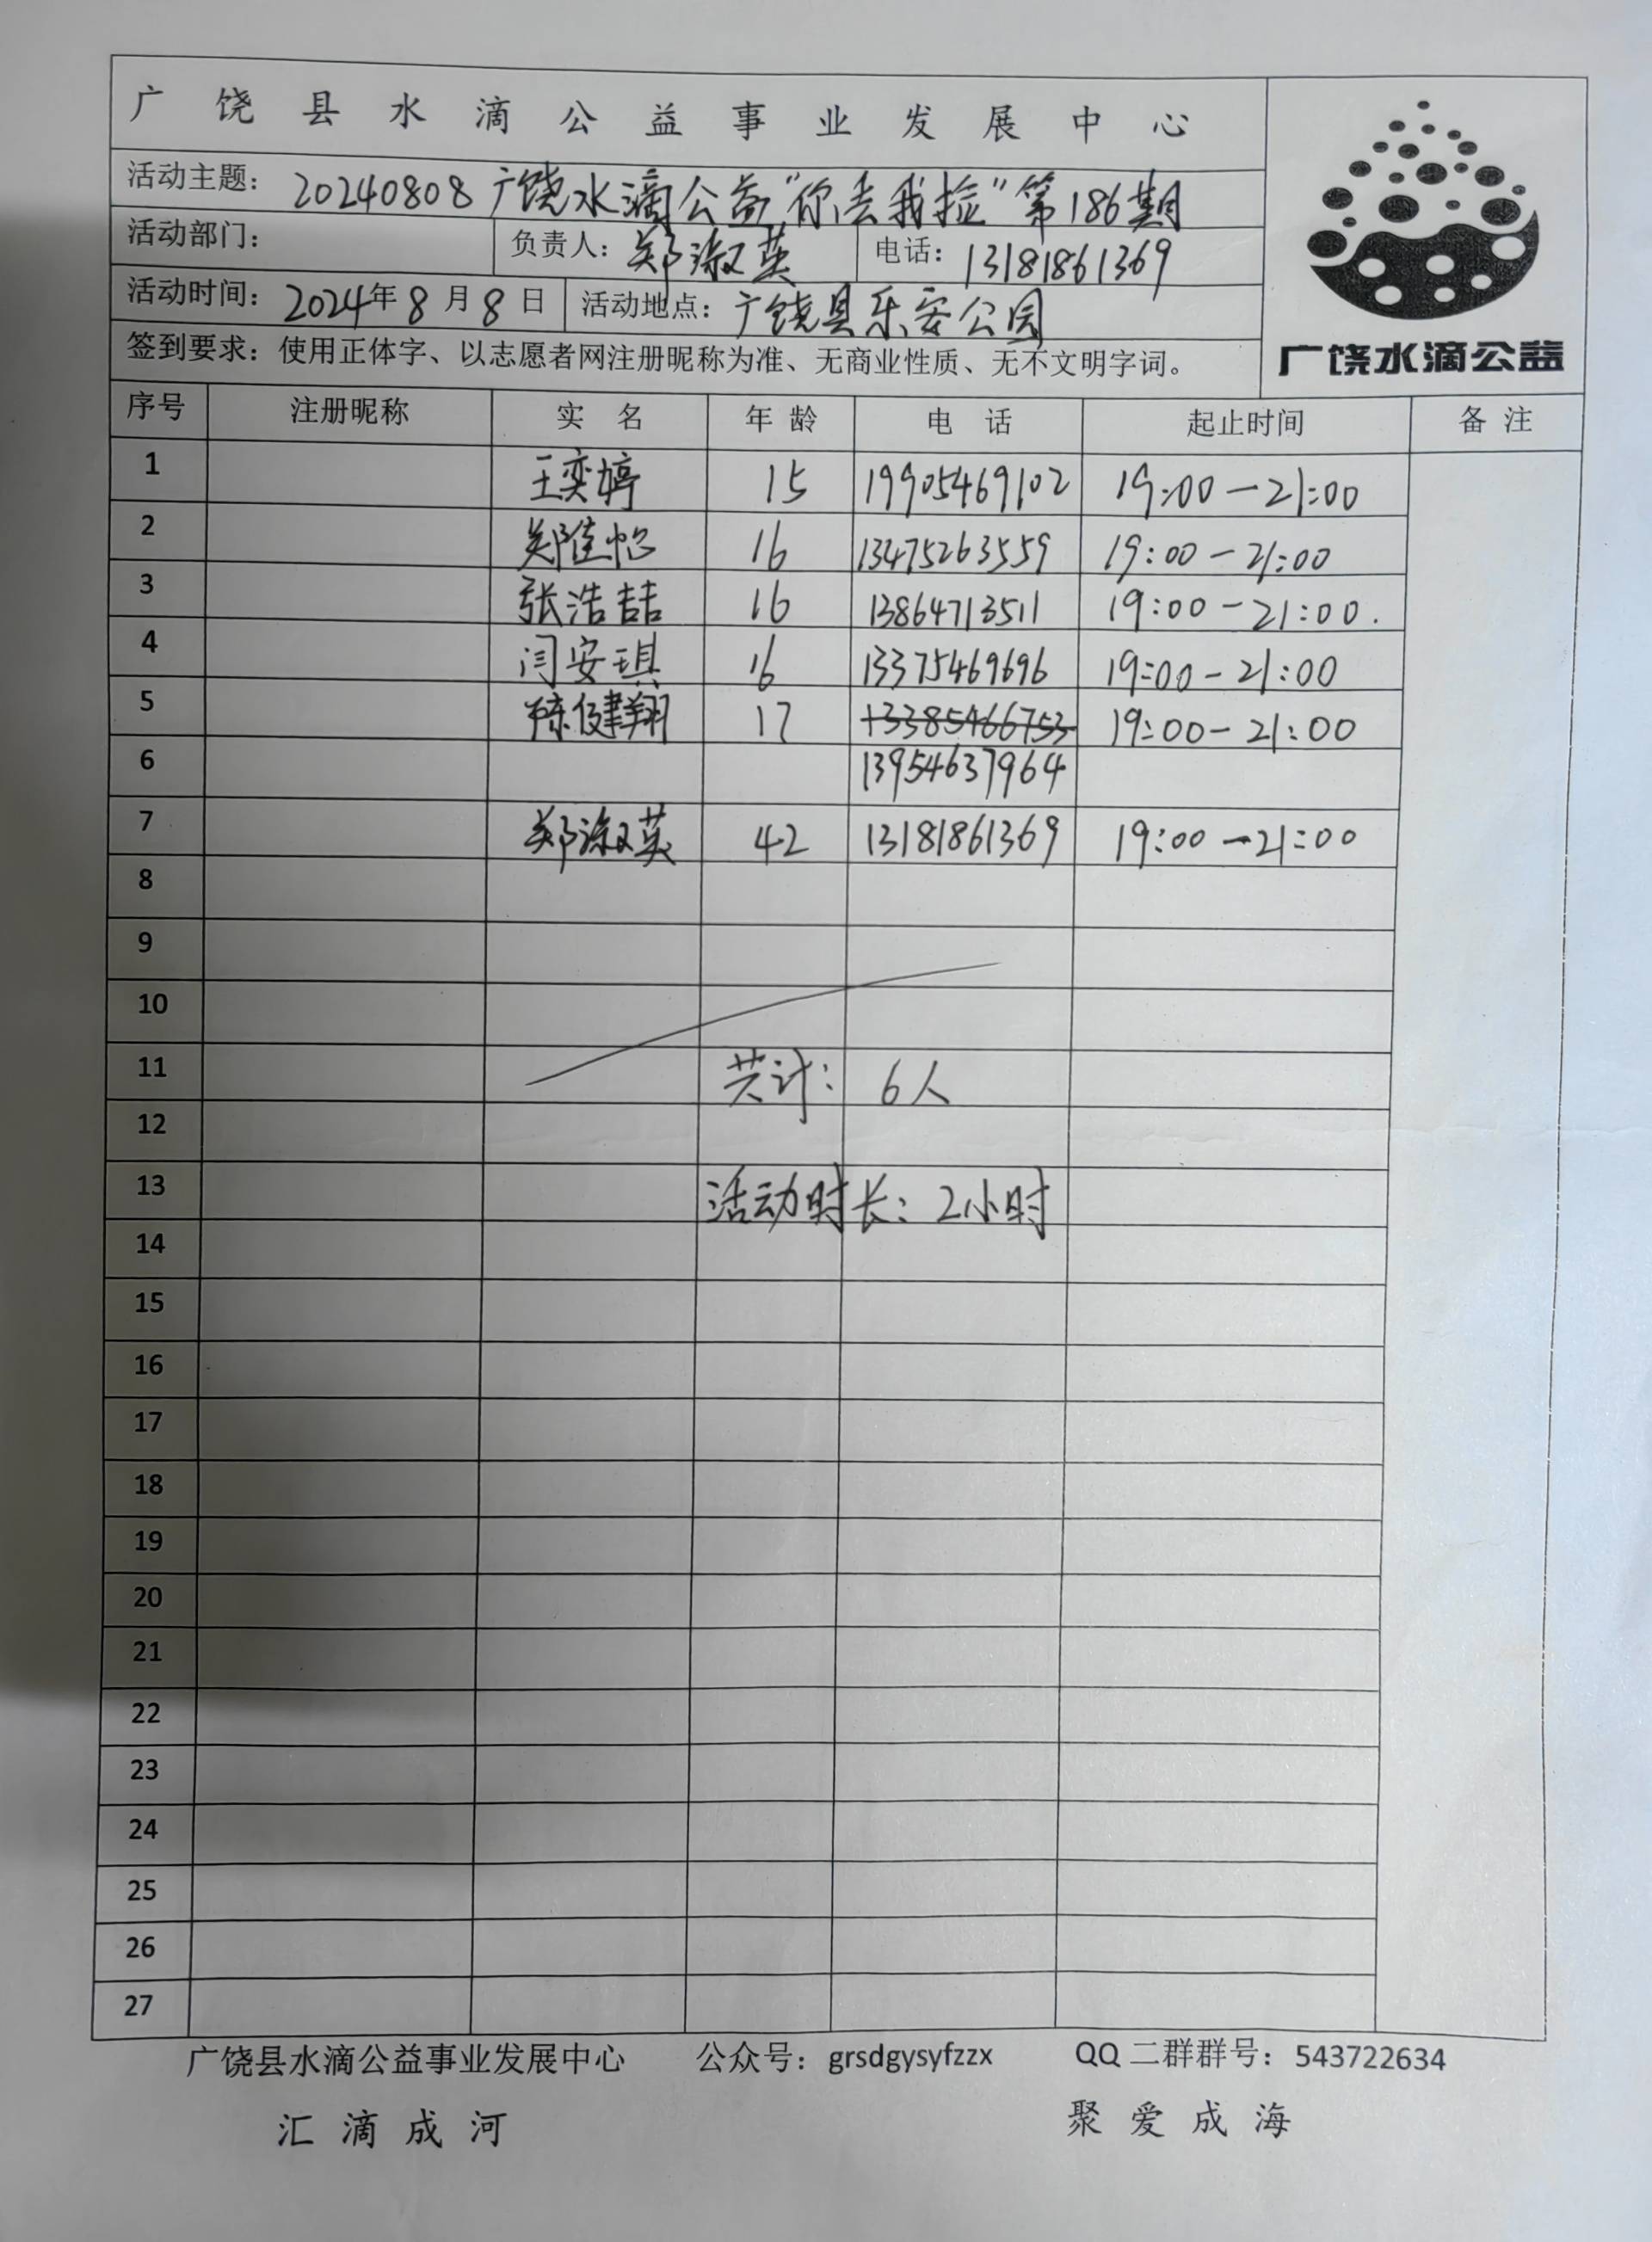 广饶县水滴公益事业发展中心
活动主题：20240808广饶水滴公益“你丢我捡”第186期
活动部门： 负责人：郑淑英 电话：13181861369
活动时间：2024年8月8日 活动地点：广饶县乐安公园
签到要求：使用正体字、以志愿者网注册昵称为准、无商业性质、无不文明字词。
广饶水滴公益
序号 注册昵称 实 名 年 龄 电 话 起止时间 备 注
1 王奕婷 15 19905469102 19:00-21:00
2 郑佳怡 16 13475263559 19:00-21:00
3 张浩喆 16 13864713511 19:00-21:00.
4 闫安琪 16 13375469696 19:00-21:00
5 陈健翔 17 13385466753 19:00-21:00
6 13954637964
7 郑淑英 42 13181861369 19:00-21:00
8
9
10
11 共计：6人
12
13 活动时长：2小时
14
15
16
17
18
19
20
21
22
23
24
25
26
27
广饶县水滴公益事业发展中心 公众号：grsdgysyfzzx QQ二群群号：543722634
汇滴成河 聚爱成海